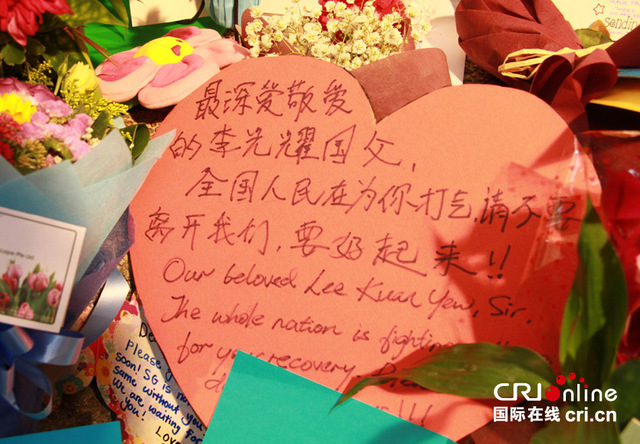 最深爱敬爱
的李光耀国父，
全国人民在为你打气，请不要
离开我们，要好起来！！
Our beloved Lee Kuan Yew, Sir.
The whole nation is fighting
for your recovery.
soon! SG is no
same without you
We are, waiting for
you!
Love
CRI online
国际在线 cri.cn